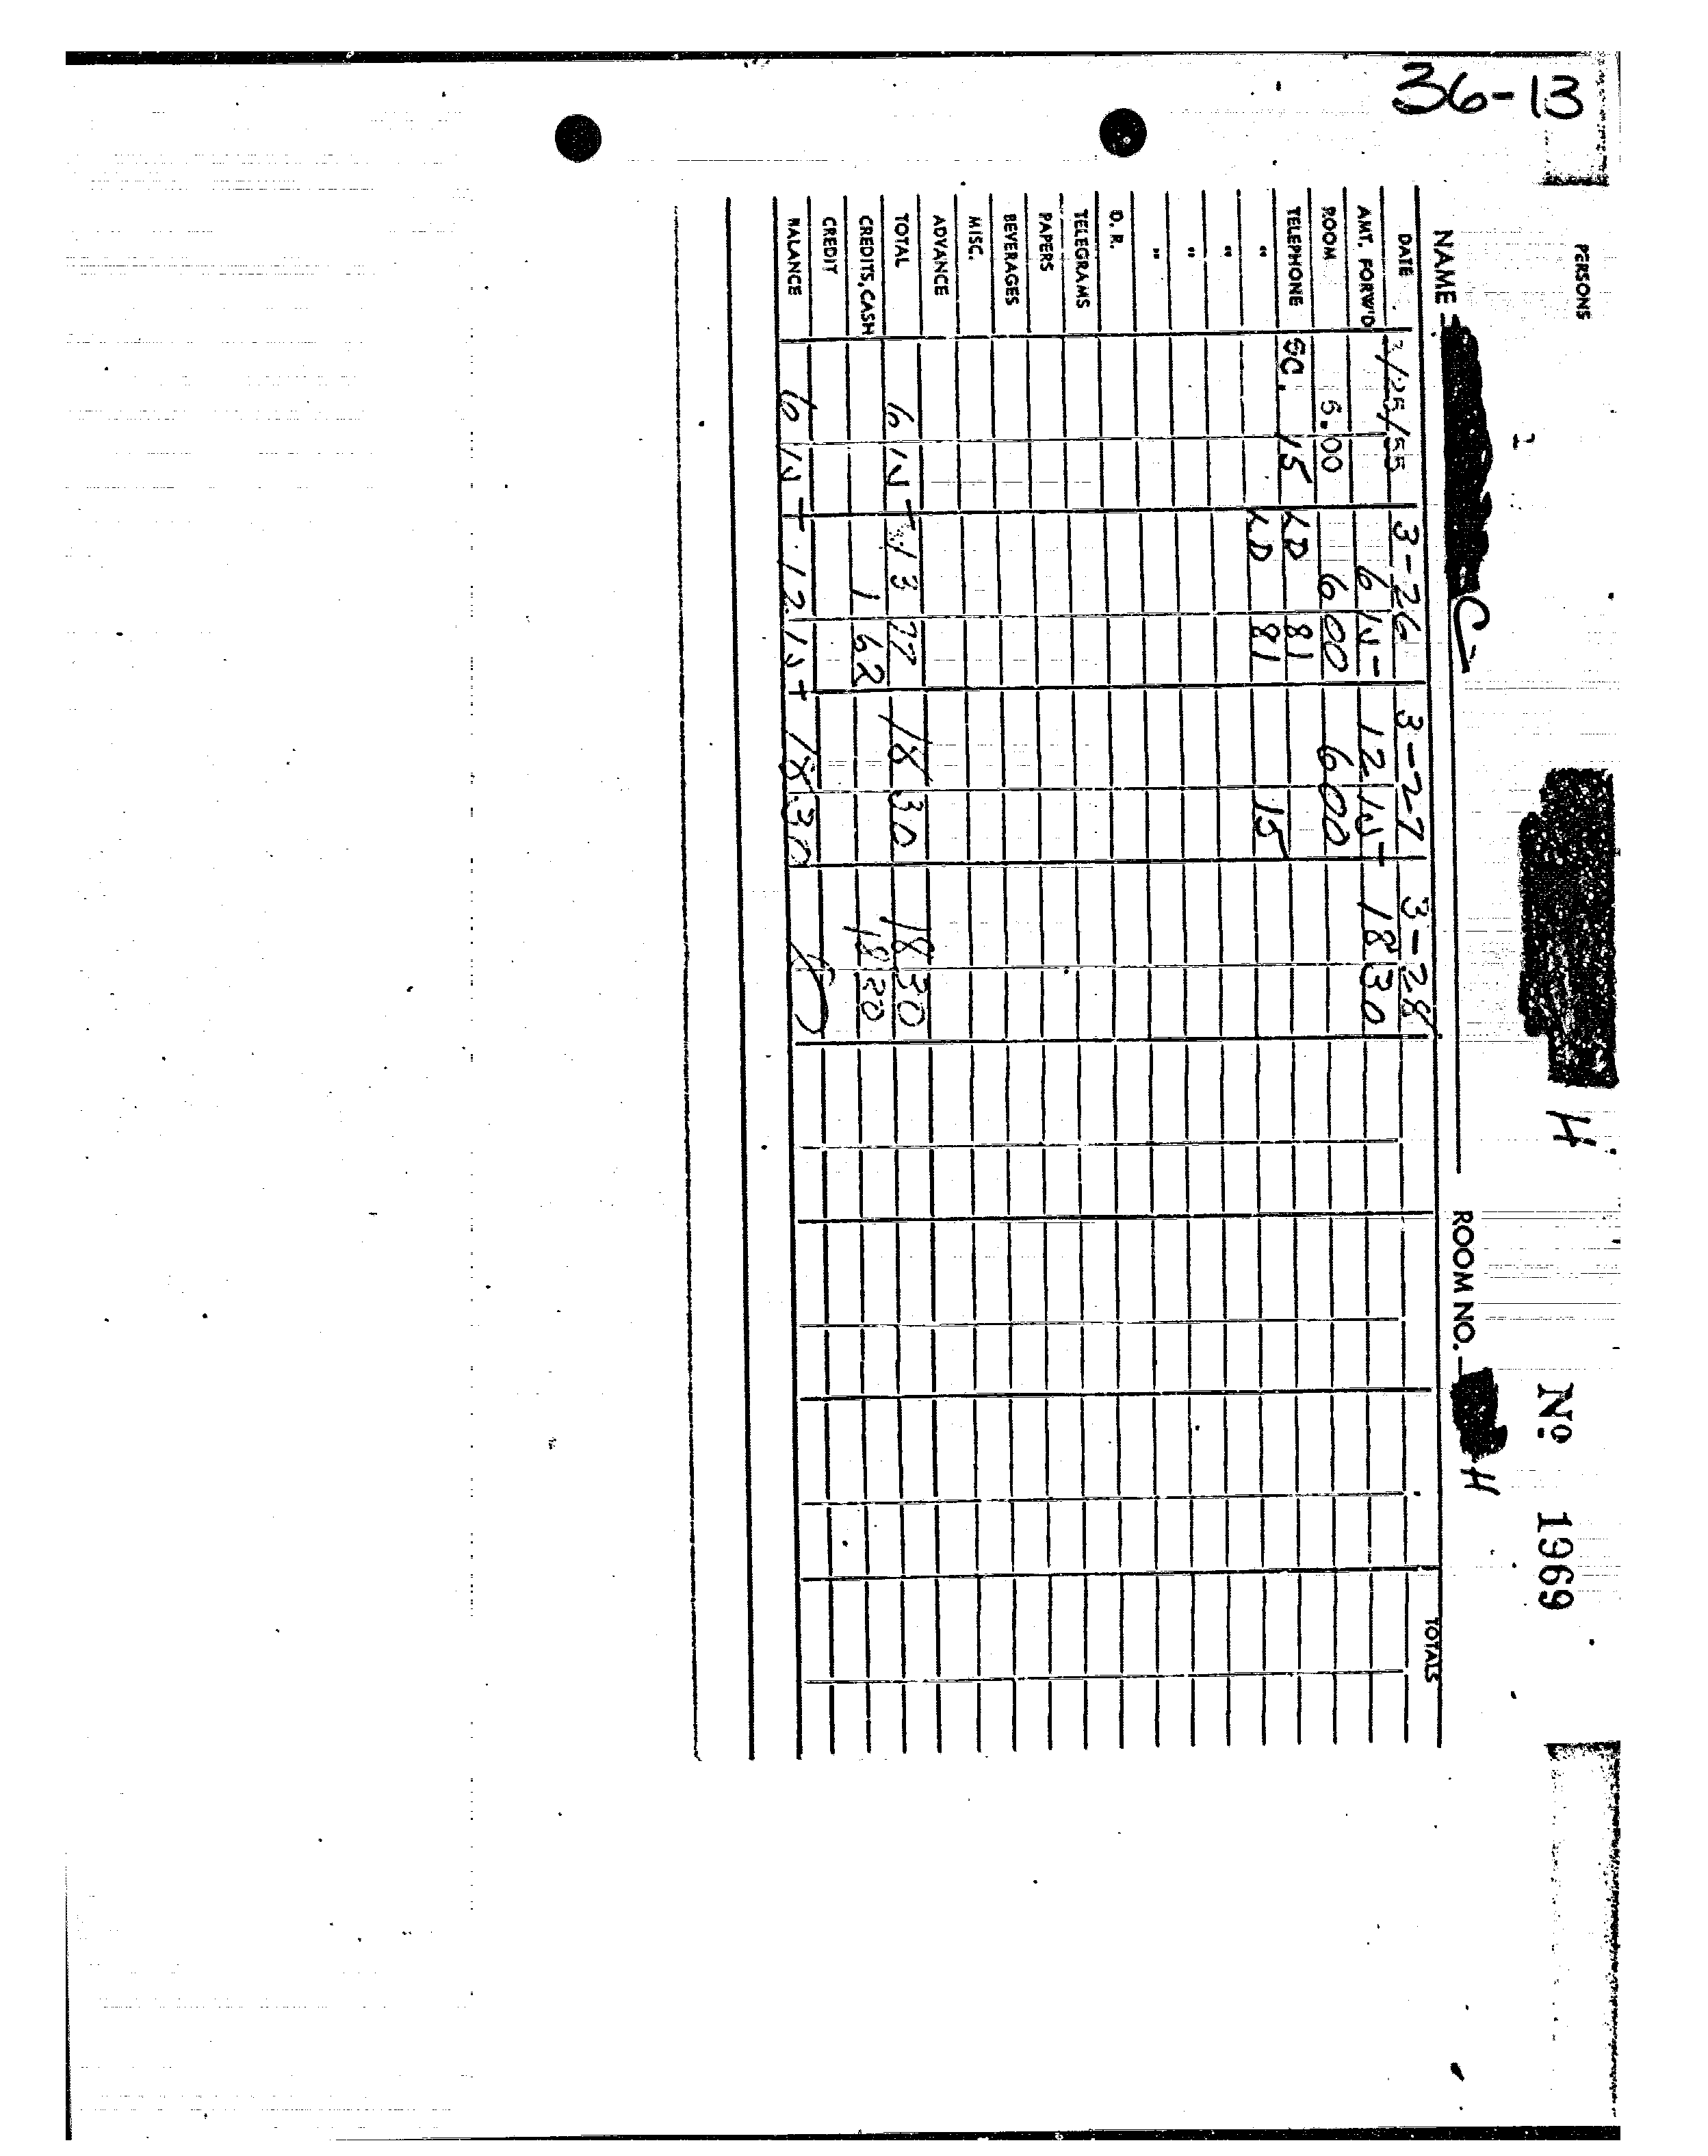 36-13
PERSONS 2 H Nº 1969
NAME C ROOM NO. H
TOTALS
DATE 3/25/55 3-26 3-27 3-28
AMT. FORW'D 6 15 12 15 18 30
ROOM 6.00 6 00 6 00
TELEPHONE SC. 15 LD 81
" LD 81 15
"
"
"
D. R.
TELEGRAMS
PAPERS
BEVERAGES
MISC.
ADVANCE
TOTAL 6 15 13 77 18 30 18 30
CREDITS, CASH 1 62 18 30
CREDIT
BALANCE 6 15 12 15 18 30